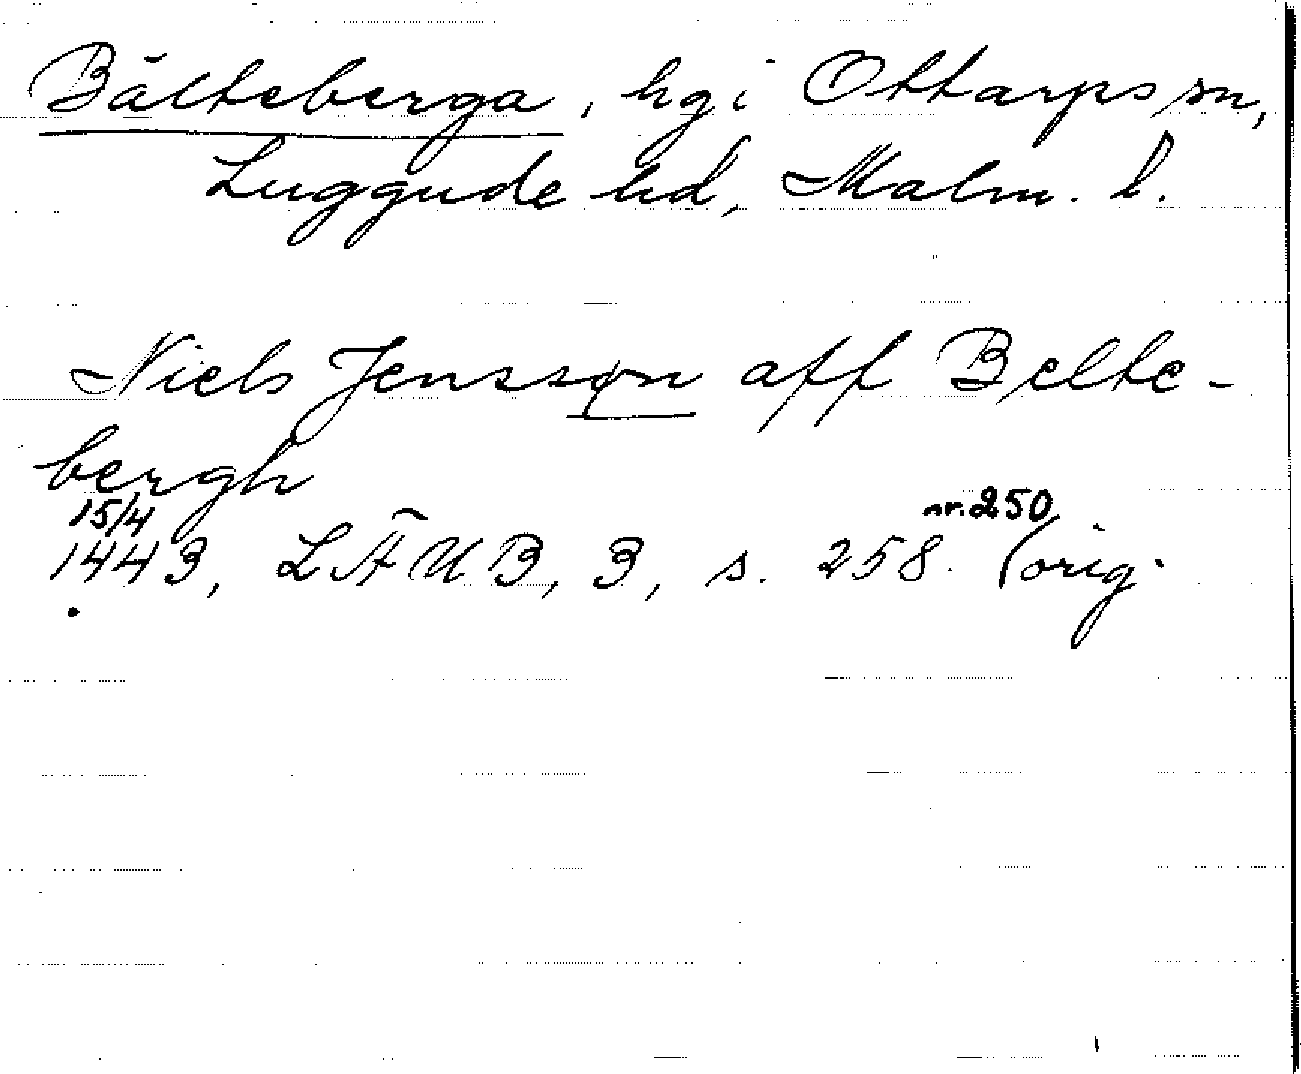 Bälteberga, hg i Ottarps sn,
Luggude hd, Malm. l.
Niels Jensson aff Belte-
bergh
15/4 nr. 250
1443, LÄUB, 3, s. 258. (orig.